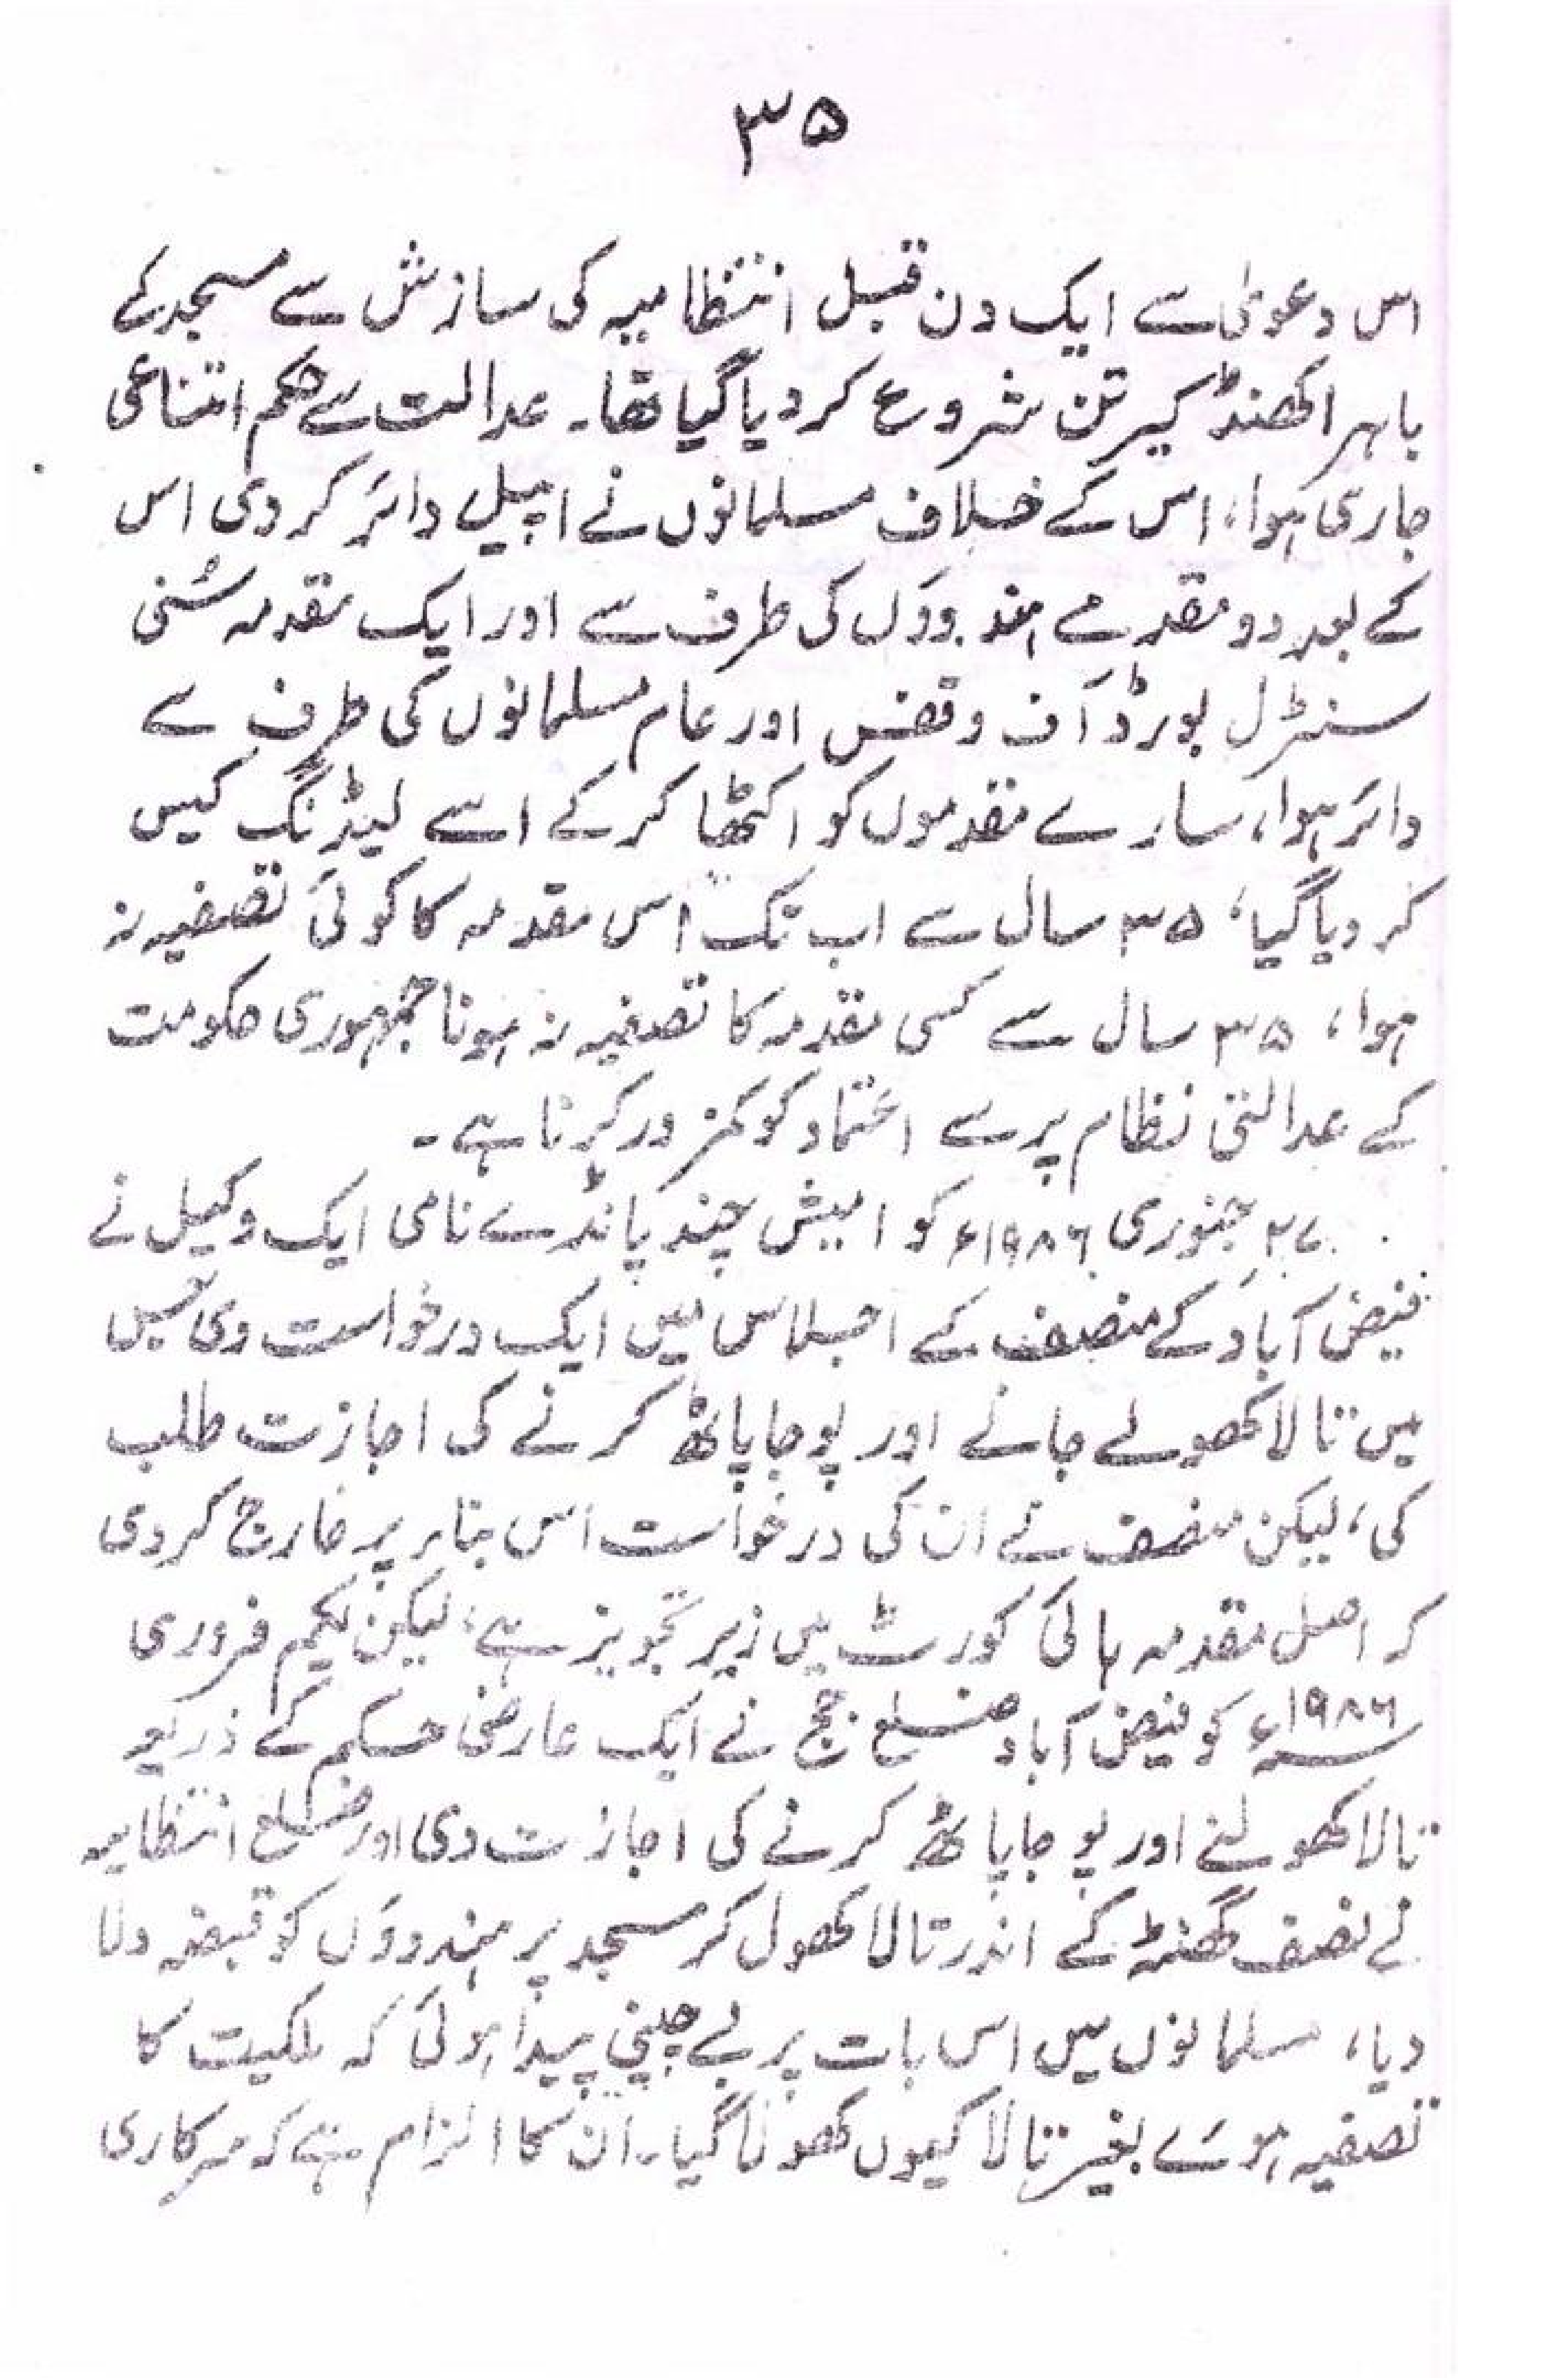 ۳۵
اس دعویٰ سے ایک دن قبل انتظامیہ کی سازش سے مسجد کے
باہر اکھنڈ کیرتن شروع کر دیا گیا تھا۔ عدالت سے حکم امتناعی
جاری ہوا، اس کے خلاف مسلمانوں نے اپیل دائر کر دی اس
کے بعد دو مقدمے ہندوؤں کی طرف سے اور ایک مقدمہ سُنی
سنٹرل بورڈ آف وقفس اور عام مسلمانوں کی طرف سے
دائر ہوا، سارے مقدموں کو اکٹھا کر کے اسے لیڈنگ کیس
کر دیا گیا، ۳۵ سال سے اب تک اس مقدمہ کا کوئی تصفیہ نہ
ہوا، ۳۵ سال سے کسی مقدمہ کا تصفیہ نہ ہونا جمہوری حکومت
کے عدالتی نظام پر سے اعتماد کو کمزور کرنا ہے۔
۲۷ جنوری ۱۹۸۶ء کو امیش چند پانڈے نامی ایک وکیل نے
فیض آباد کے منصف کے اجلاس میں ایک درخواست دی جس
میں تالا کھولے جانے اور پوجا پاٹھ کرنے کی اجازت طلب
کی، لیکن منصف نے ان کی درخواست اس بناء پر خارج کر دی
کہ اصل مقدمہ ہائی کورٹ میں زیر تجویز ہے، لیکن یکم فروری
۱۹۸۶ء کو فیض آباد ضلع جج نے ایک عارضی حکم کے ذریعہ
تالا کھولنے اور پوجا پاٹھ کرنے کی اجازت دی اور ضلع انتظامیہ
نے نصف گھنٹہ کے اندر تالا کھول کر مسجد پر ہندوؤں کو قبضہ دلا
دیا، مسلمانوں میں اس بات پر بے چینی پیدا ہوئی کہ ملکیت کا
تصفیہ ہوئے بغیر تالا کیوں کھولا گیا۔ ان کا الزام ہے کہ سرکاری